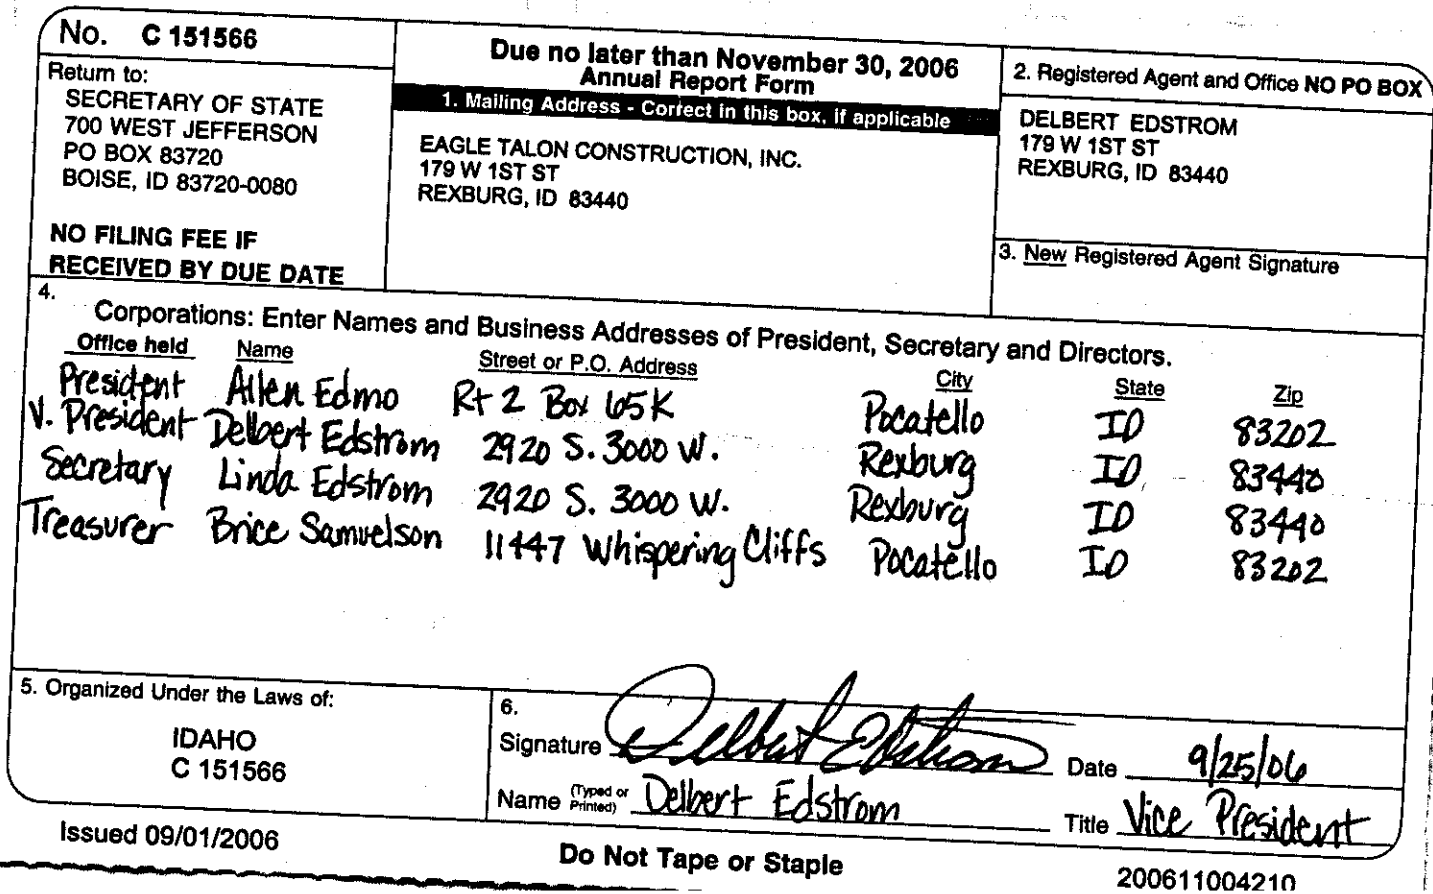 No. C 151566
Return to:
SECRETARY OF STATE
700 WEST JEFFERSON
PO BOX 83720
BOISE, ID 83720-0080
NO FILING FEE IF
RECEIVED BY DUE DATE
Due no later than November 30, 2006
Annual Report Form
1. Mailing Address - Correct in this box, if applicable
EAGLE TALON CONSTRUCTION, INC.
179 W 1ST ST
REXBURG, ID 83440
2. Registered Agent and Office NO PO BOX
DELBERT EDSTROM
179 W 1ST ST
REXBURG, ID 83440
3. New Registered Agent Signature
4.
Corporations: Enter Names and Business Addresses of President, Secretary and Directors.
Office held Name Street or P.O. Address City State Zip
President Allen Edmo Rt 2 Box 65K Pocatello ID 83202
V. President Delbert Edstrom 2920 S. 3000 W. Rexburg ID 83440
Secretary Linda Edstrom 2920 S. 3000 W. Rexburg ID 83440
Treasurer Brice Samuelson 11447 Whispering Cliffs Pocatello ID 83202
5. Organized Under the Laws of:
IDAHO
C 151566
6.
Signature Delbert Edstrom Date 9/25/06
Name (Typed or Printed) Delbert Edstrom Title Vice President
Issued 09/01/2006
Do Not Tape or Staple
200611004210